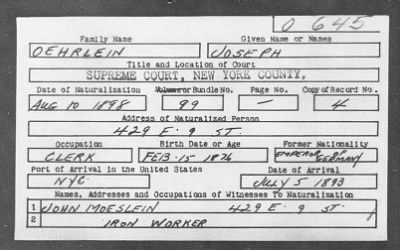 O 645
Family Name Given Name or Names
OEHRLEIN JOSEPH
Title and Location of Court
SUPREME COURT, NEW YORK COUNTY,
Date of Naturalization Volume or Bundle No. Page No. Copy of Record No.
AUG 10 1898 99 — 4
Address of Naturalized Person
429 E. 9 ST.
Occupation Birth Date or Age Former Nationality
CLERK FEB-15 1876 EMPEROR OF GERMANY
Port of Arrival in the United States Date of Arrival
NYC. JULY 5 1893
Names, Addresses and Occupations of Witnesses To Naturalization
1 JOHN MOESLEIN 429 E. 9 ST.
2 IRON WORKER